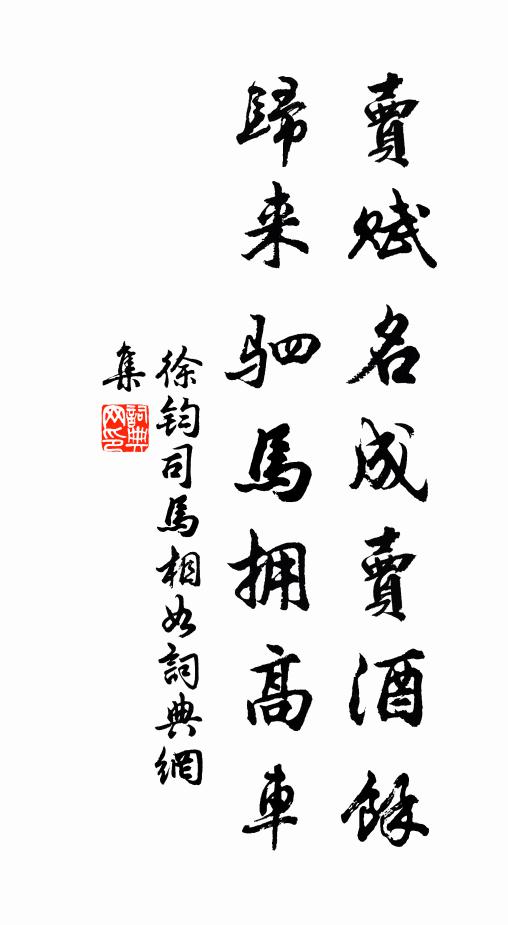 賣賦名成賣酒餘
歸来駟馬拥高車
徐鈞司馬相如詞典網
集
詞典
网印